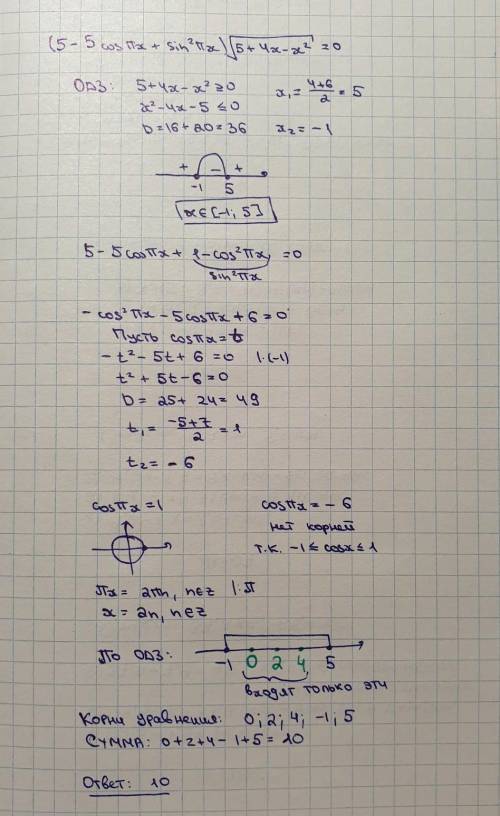 (5 - 5 cos πx + sin²πx)√5 + 4x - x² = 0
ОДЗ: 5 + 4x - x² ≥ 0 x₁ = 4+6/2 = 5
x² - 4x - 5 ≤ 0
D = 16 + 20 = 36 x₂ = -1
+ - +
-1 5
x ∈ [-1; 5]
5 - 5 cos πx + 1 - cos²πx = 0
sin²πx
- cos²πx - 5 cos πx + 6 = 0
Пусть cos πx = t
- t² - 5t + 6 = 0 |·(-1)
t² + 5t - 6 = 0
D = 25 + 24 = 49
t₁ = -5+7/2 = 1
t₂ = - 6
cos πx = 1 cos πx = - 6
нет корней
т.к. -1 ≤ cos x ≤ 1
πx = 2πn, n ∈ z |:π
x = 2n, n ∈ z
По ОДЗ: -1 0 2 4 5
входят только эти
Корни уравнения: 0; 2; 4; -1; 5
Сумма: 0 + 2 + 4 - 1 + 5 = 10
Ответ: 10